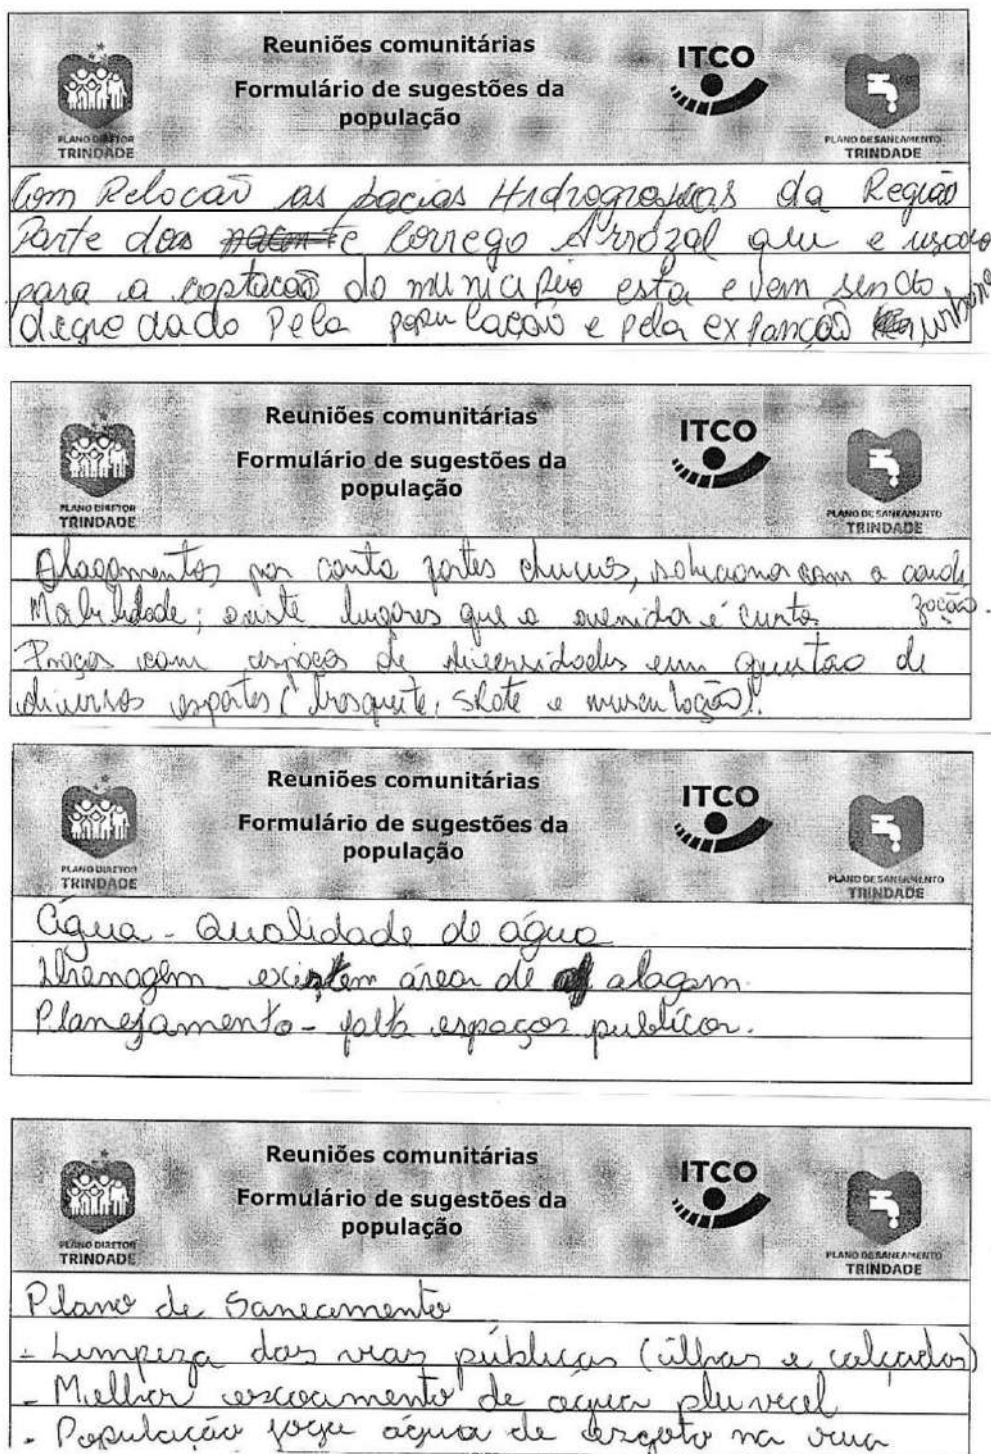 Reuniões comunitárias
Formulário de sugestões da
população
ITCO
PLANO DIRETOR
TRINDADE
PLANO DE SANEAMENTO
TRINDADE
Com Relocaõ as bacias Hidrograficas da Região
Parte das e Corrego Arrozal que e usado
para a coptacaõ do municipio esta e vem sendo
degredado Pela populacão e pela expanção urbana
Reuniões comunitárias
Formulário de sugestões da
população
ITCO
PLANO DIRETOR
TRINDADE
PLANO DE SANEAMENTO
TRINDADE
Alagamentos por conta fortes chuvas, solucionar com a canali
zação.
Mobilidade; existe lugares que a avenida é curta
Praças com espaços de diversidades em questão de
diversos esportes (basquite, skate e musculação).
Reuniões comunitárias
Formulário de sugestões da
população
ITCO
PLANO DIRETOR
TRINDADE
PLANO DE SANEAMENTO
TRINDADE
Água - Qualidade de água
Drenagem existem área de alagam.
Planejamento - falta espaços publicos.
Reuniões comunitárias
Formulário de sugestões da
população
ITCO
PLANO DIRETOR
TRINDADE
PLANO DE SANEAMENTO
TRINDADE
Plano de Saneamento
- Limpeza das vias públicas (ilhas e calçadas)
- Melhor escoamento de água pluvial
- População joga água de esgoto na rua